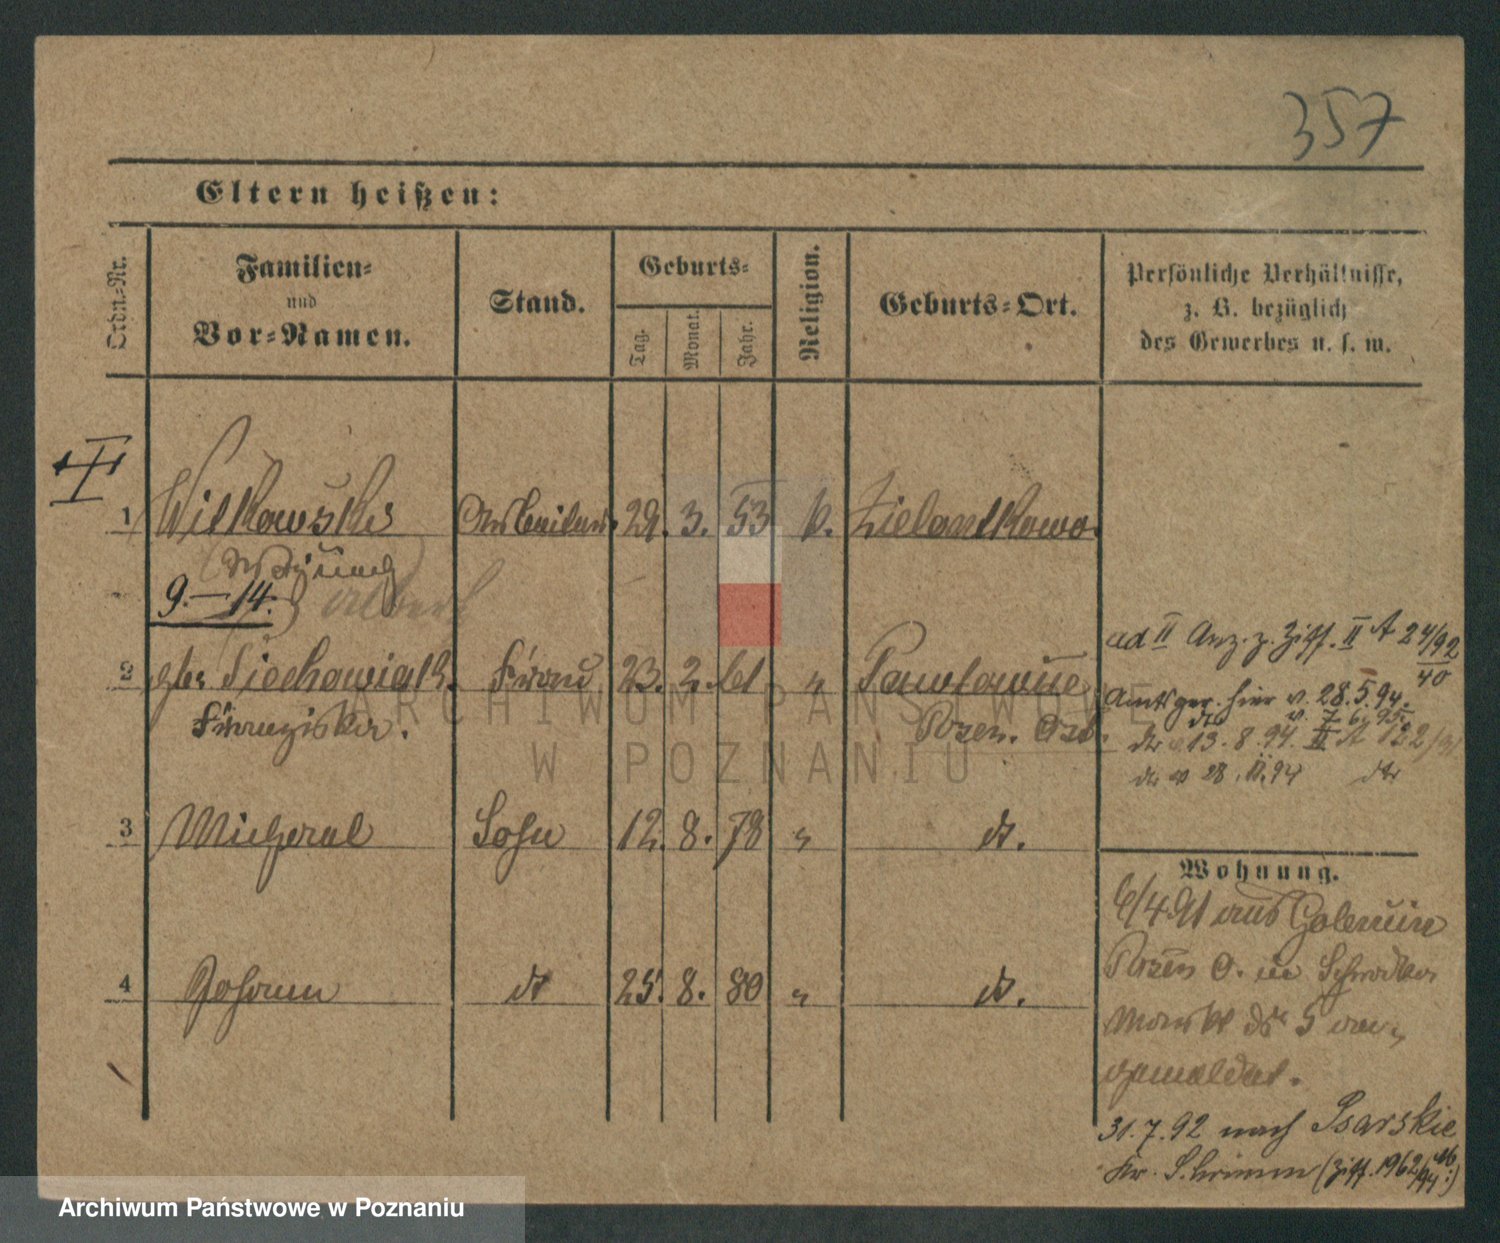 357
Eltern heißen:
Ordn.-Nr.
Familien-
und
Vor-Namen.
Stand.
Geburts-
Tag.
Monat.
Jahr.
Religion.
Geburts-Ort.
Persönliche Verhältnisse,
z. B. bezüglich
des Gewerbes u. s. w.
1 Witkowski Arbeiter 29. 3. 53 k. Zielontkowo.
9.—14. Albert
2 gb. Ciechowiak Frau 23. 2. 61 " Pawlowice
Franziska. Posen. Ost.
ad II Anz. z. Ziff. II A 24/92
40
Amtsger. hier v. 28.5.94.
dto v. 7. 6. 95.
dto 13. 8. 94. II A 132/3
dto v 28. 11. 94 dto
3 Michael Sohn 12. 8. 78 " dt.
4 Johann dt 25. 8. 80 " dt.
Wohnung.
6/4 91 aus Golencin
Posen O. in Schrodka
Markt No 5 an-
gemeldet.
31.7.92 nach Psarskie
Kr. Schrimm (Ziff. 1962/94.)
ARCHIWUM PAŃSTWOWE
W POZNANIU
Archiwum Państwowe w Poznaniu